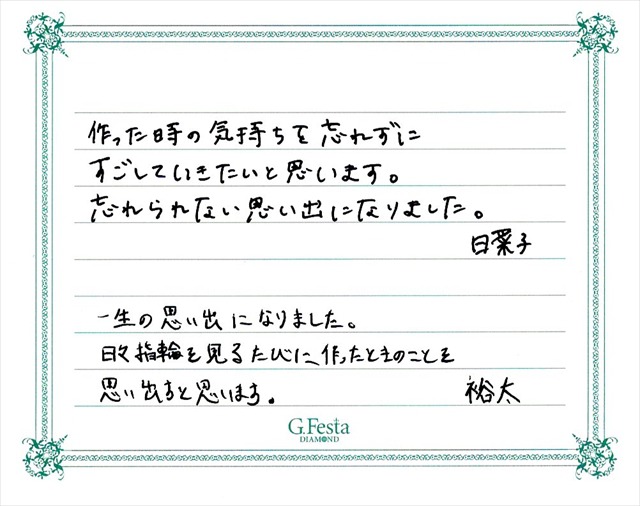 作った時の気持ちを忘れずに
すごしていきたいと思います。
忘れられない思い出になりました。
日菜子
一生の思い出になりました。
日々指輪を見るたびに、作ったときのことを
思い出すと思います。
裕太
G.Festa
DIAMOND